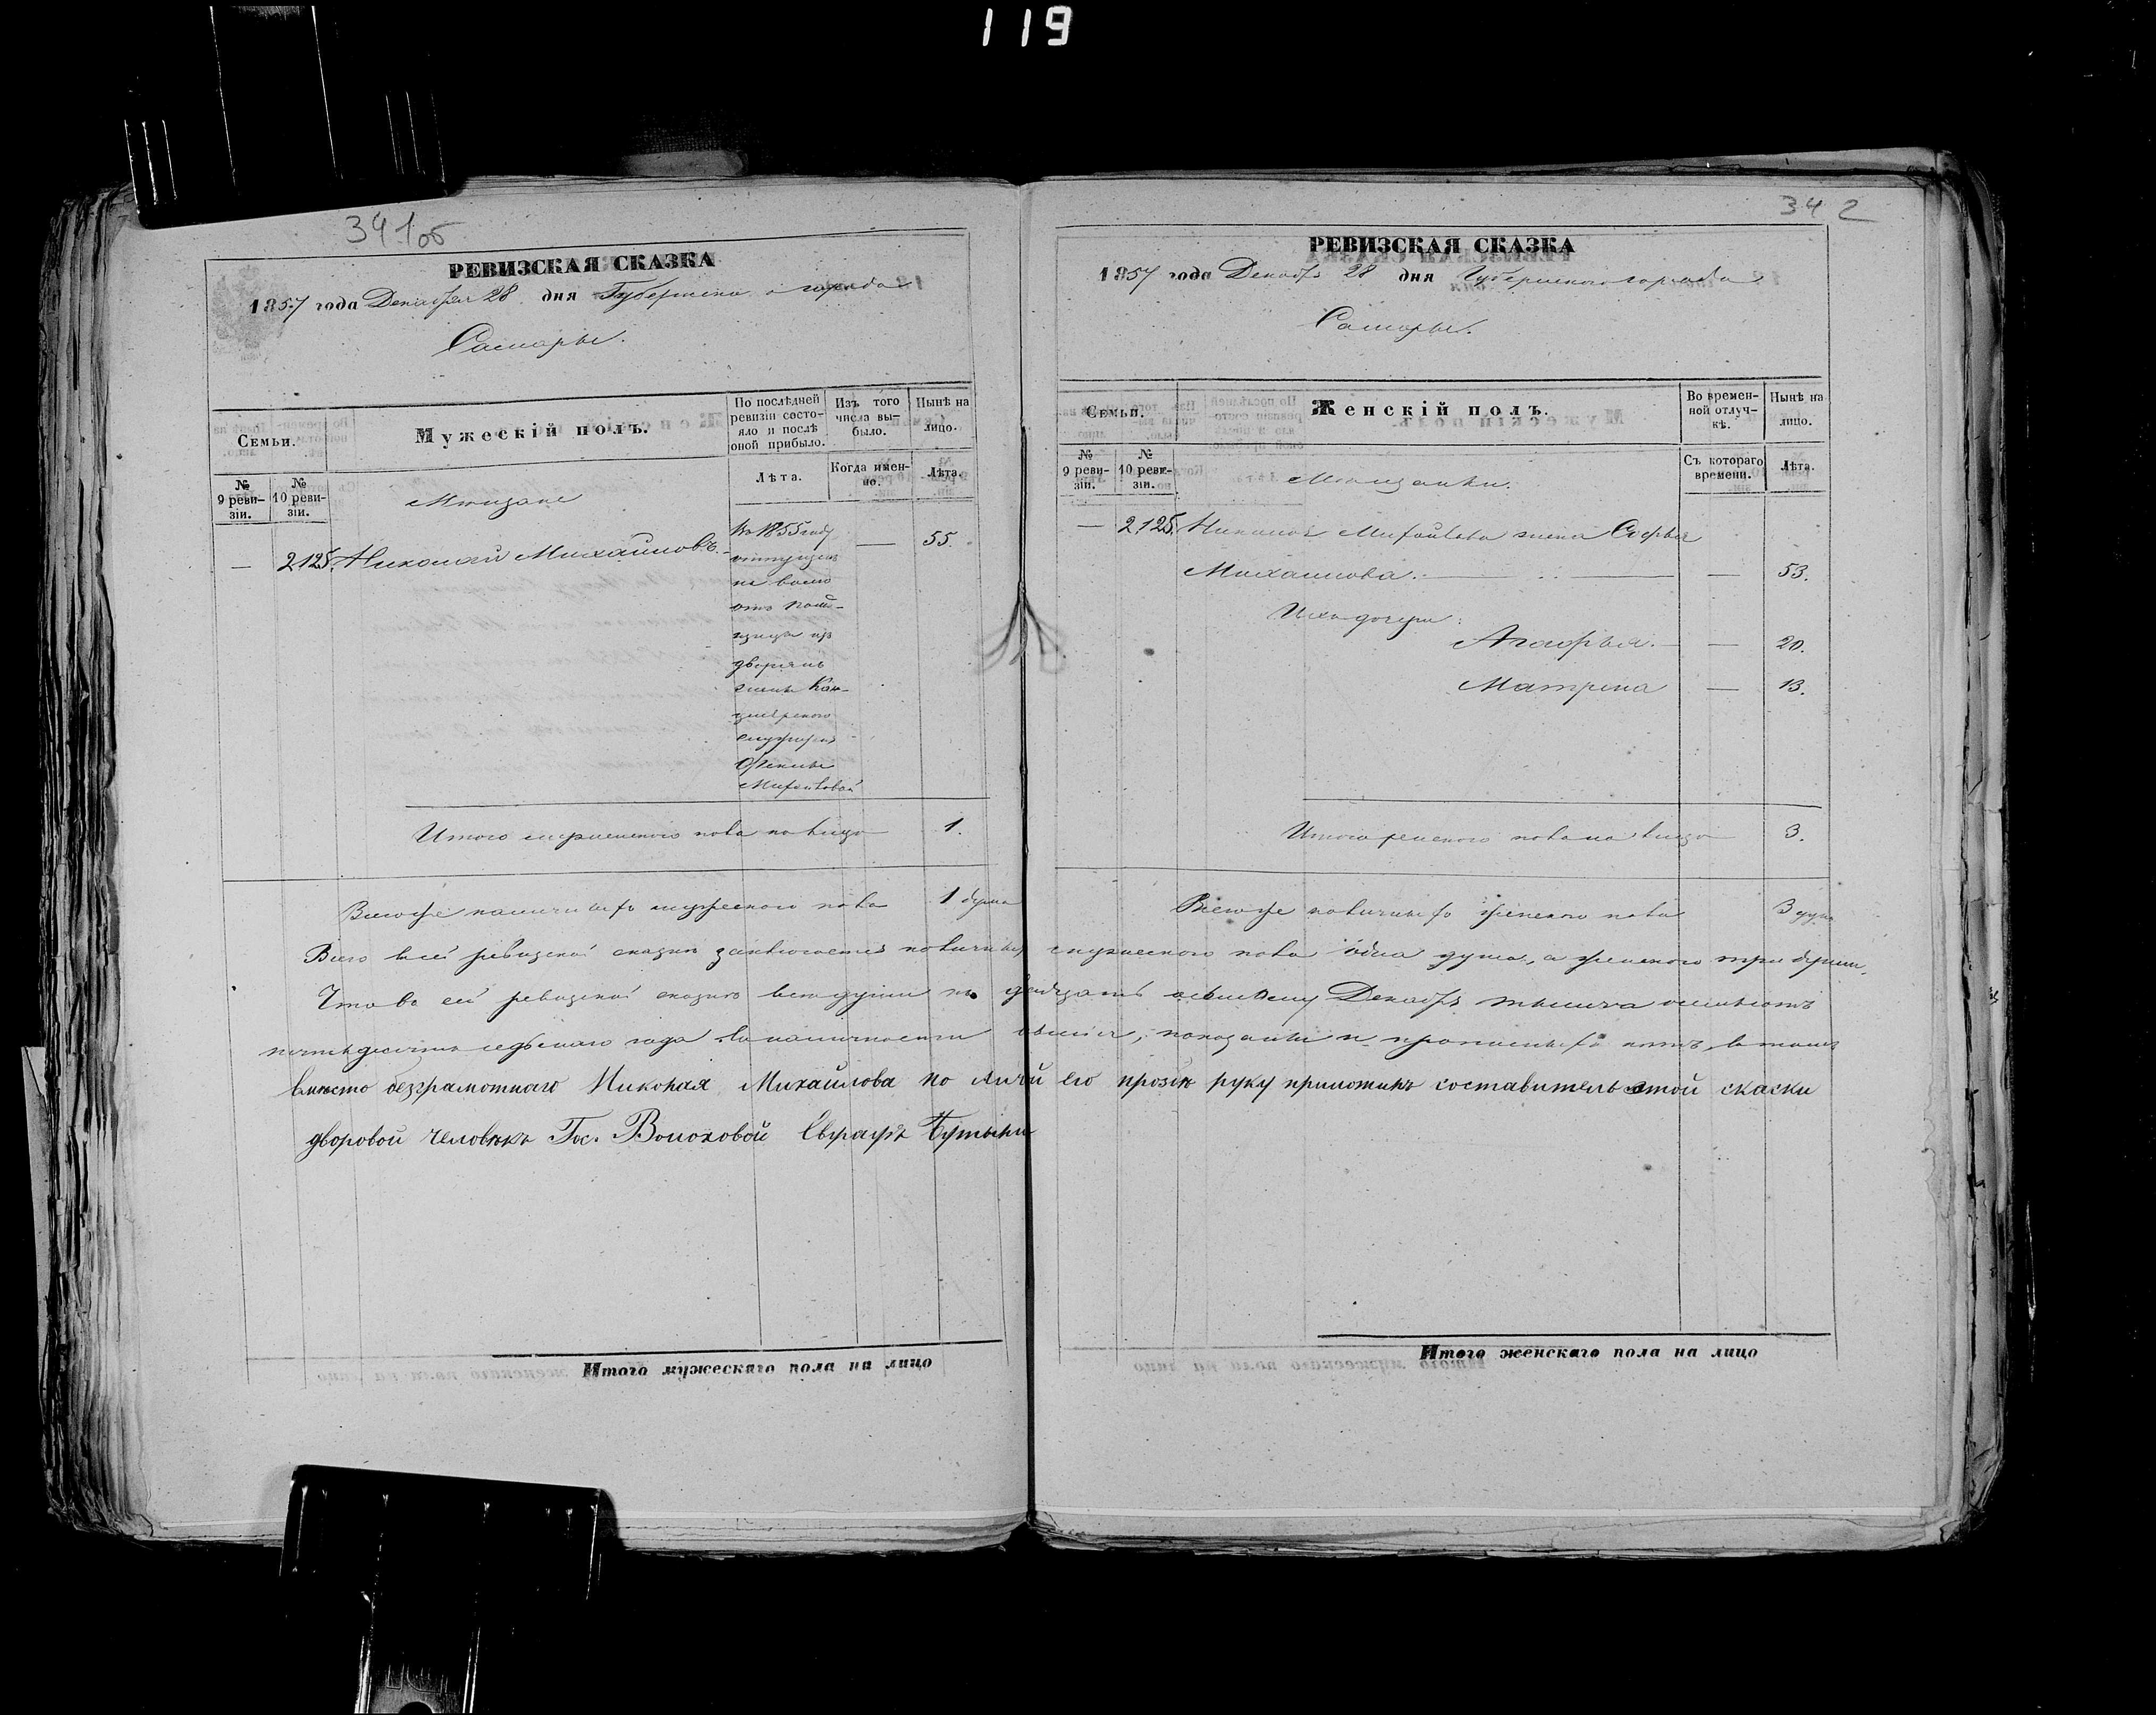 119
341об
РЕВИЗСКАЯ СКАЗКА
1857 года Декабря 28 дня Губернскаго города
Самары.
Семьи.
Мужескій полъ.
По послѣдней ревизіи состояло и послѣ оной прибыло.
Изъ того числа выбыло.
Нынѣ на лицо.
№ 9 ревизіи.
№ 10 ревизіи.
Лѣта.
Когда именно.
Лѣта.
Мѣщане
— 2125. Николай Михайловъ. — 55.
Въ 1855 году
отпущен
на волю
отъ помѣ-
щицы из
дворянъ
жены Кан-
целярскаго
служителя
Михайловой
Итого мужескаго пола на лицо 1.
Всего же наличныхъ мужескаго пола 1 душа
342
РЕВИЗСКАЯ СКАЗКА
1857 года Декабря 28 дня Губернского города
Самары.
Семьи.
Женскій полъ.
Во временной отлучкѣ.
Нынѣ на лицо.
№ 9 ревизіи.
№ 10 ревизіи.
Съ котораго времени.
Лѣта.
Мѣщанки.
— 2125. Николая Михайлова жена Софья
Михайлова. — — 53.
Ихъ дочери:
Агафья. — — 20.
Матрена — 13.
Итого женского пола на лицо 3.
Всего же наличныхъ женского пола 3 душ
Всего в сей ревизской сказке заключается наличныхъ мужескаго пола одна душа, а женского три души.
Что въ сей ревизской сказке все души по двадцать осьмому Декабря тысяча осьмсотъ
пятьдесятъ седьмаго года въ наличности показаны и прописныхъ нѣтъ, в томъ
вмѣсто безграмотнаго Николая Михайлова по личной его прозбѣ руку приложилъ составитель этой скаски
дворовой человѣкъ Гос. Волоховой
Итого мужескаго пола на лицо
Итого женскаго пола на лицо